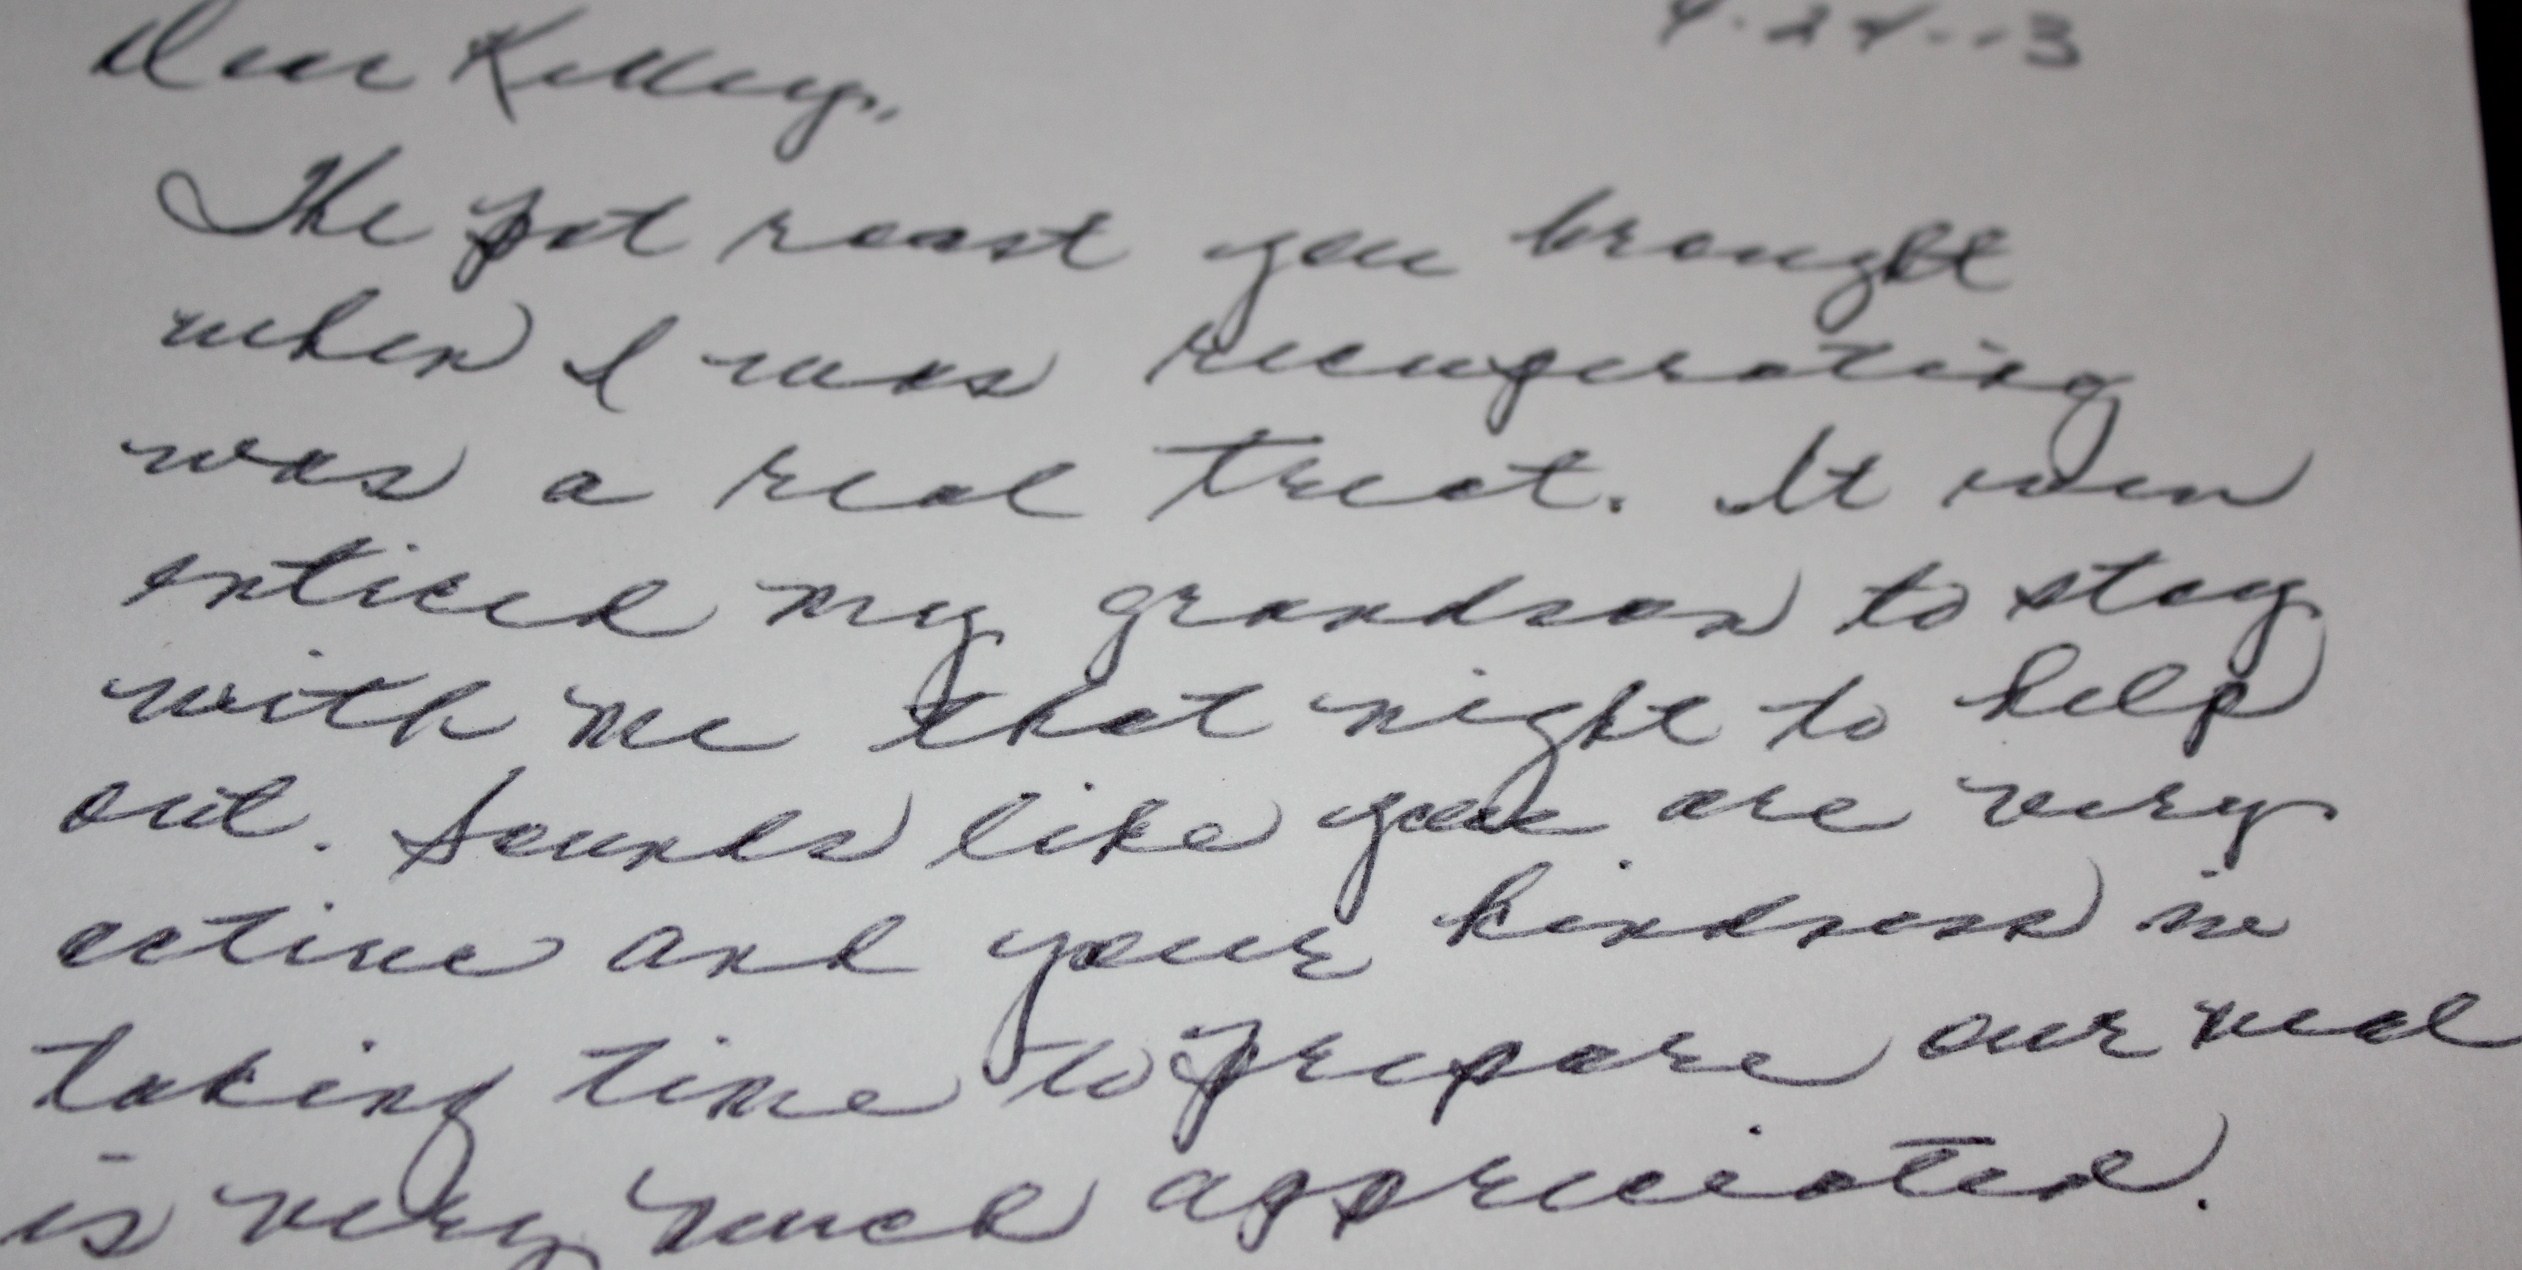 Dear Kelley,
The pot roast you brought
when I was recuperating
was a real treat. It even
enticed my grandson to stay
with me that night to help
out. Sounds like you are very
active and your kindness in
taking time to prepare our meal
is very much appreciated.